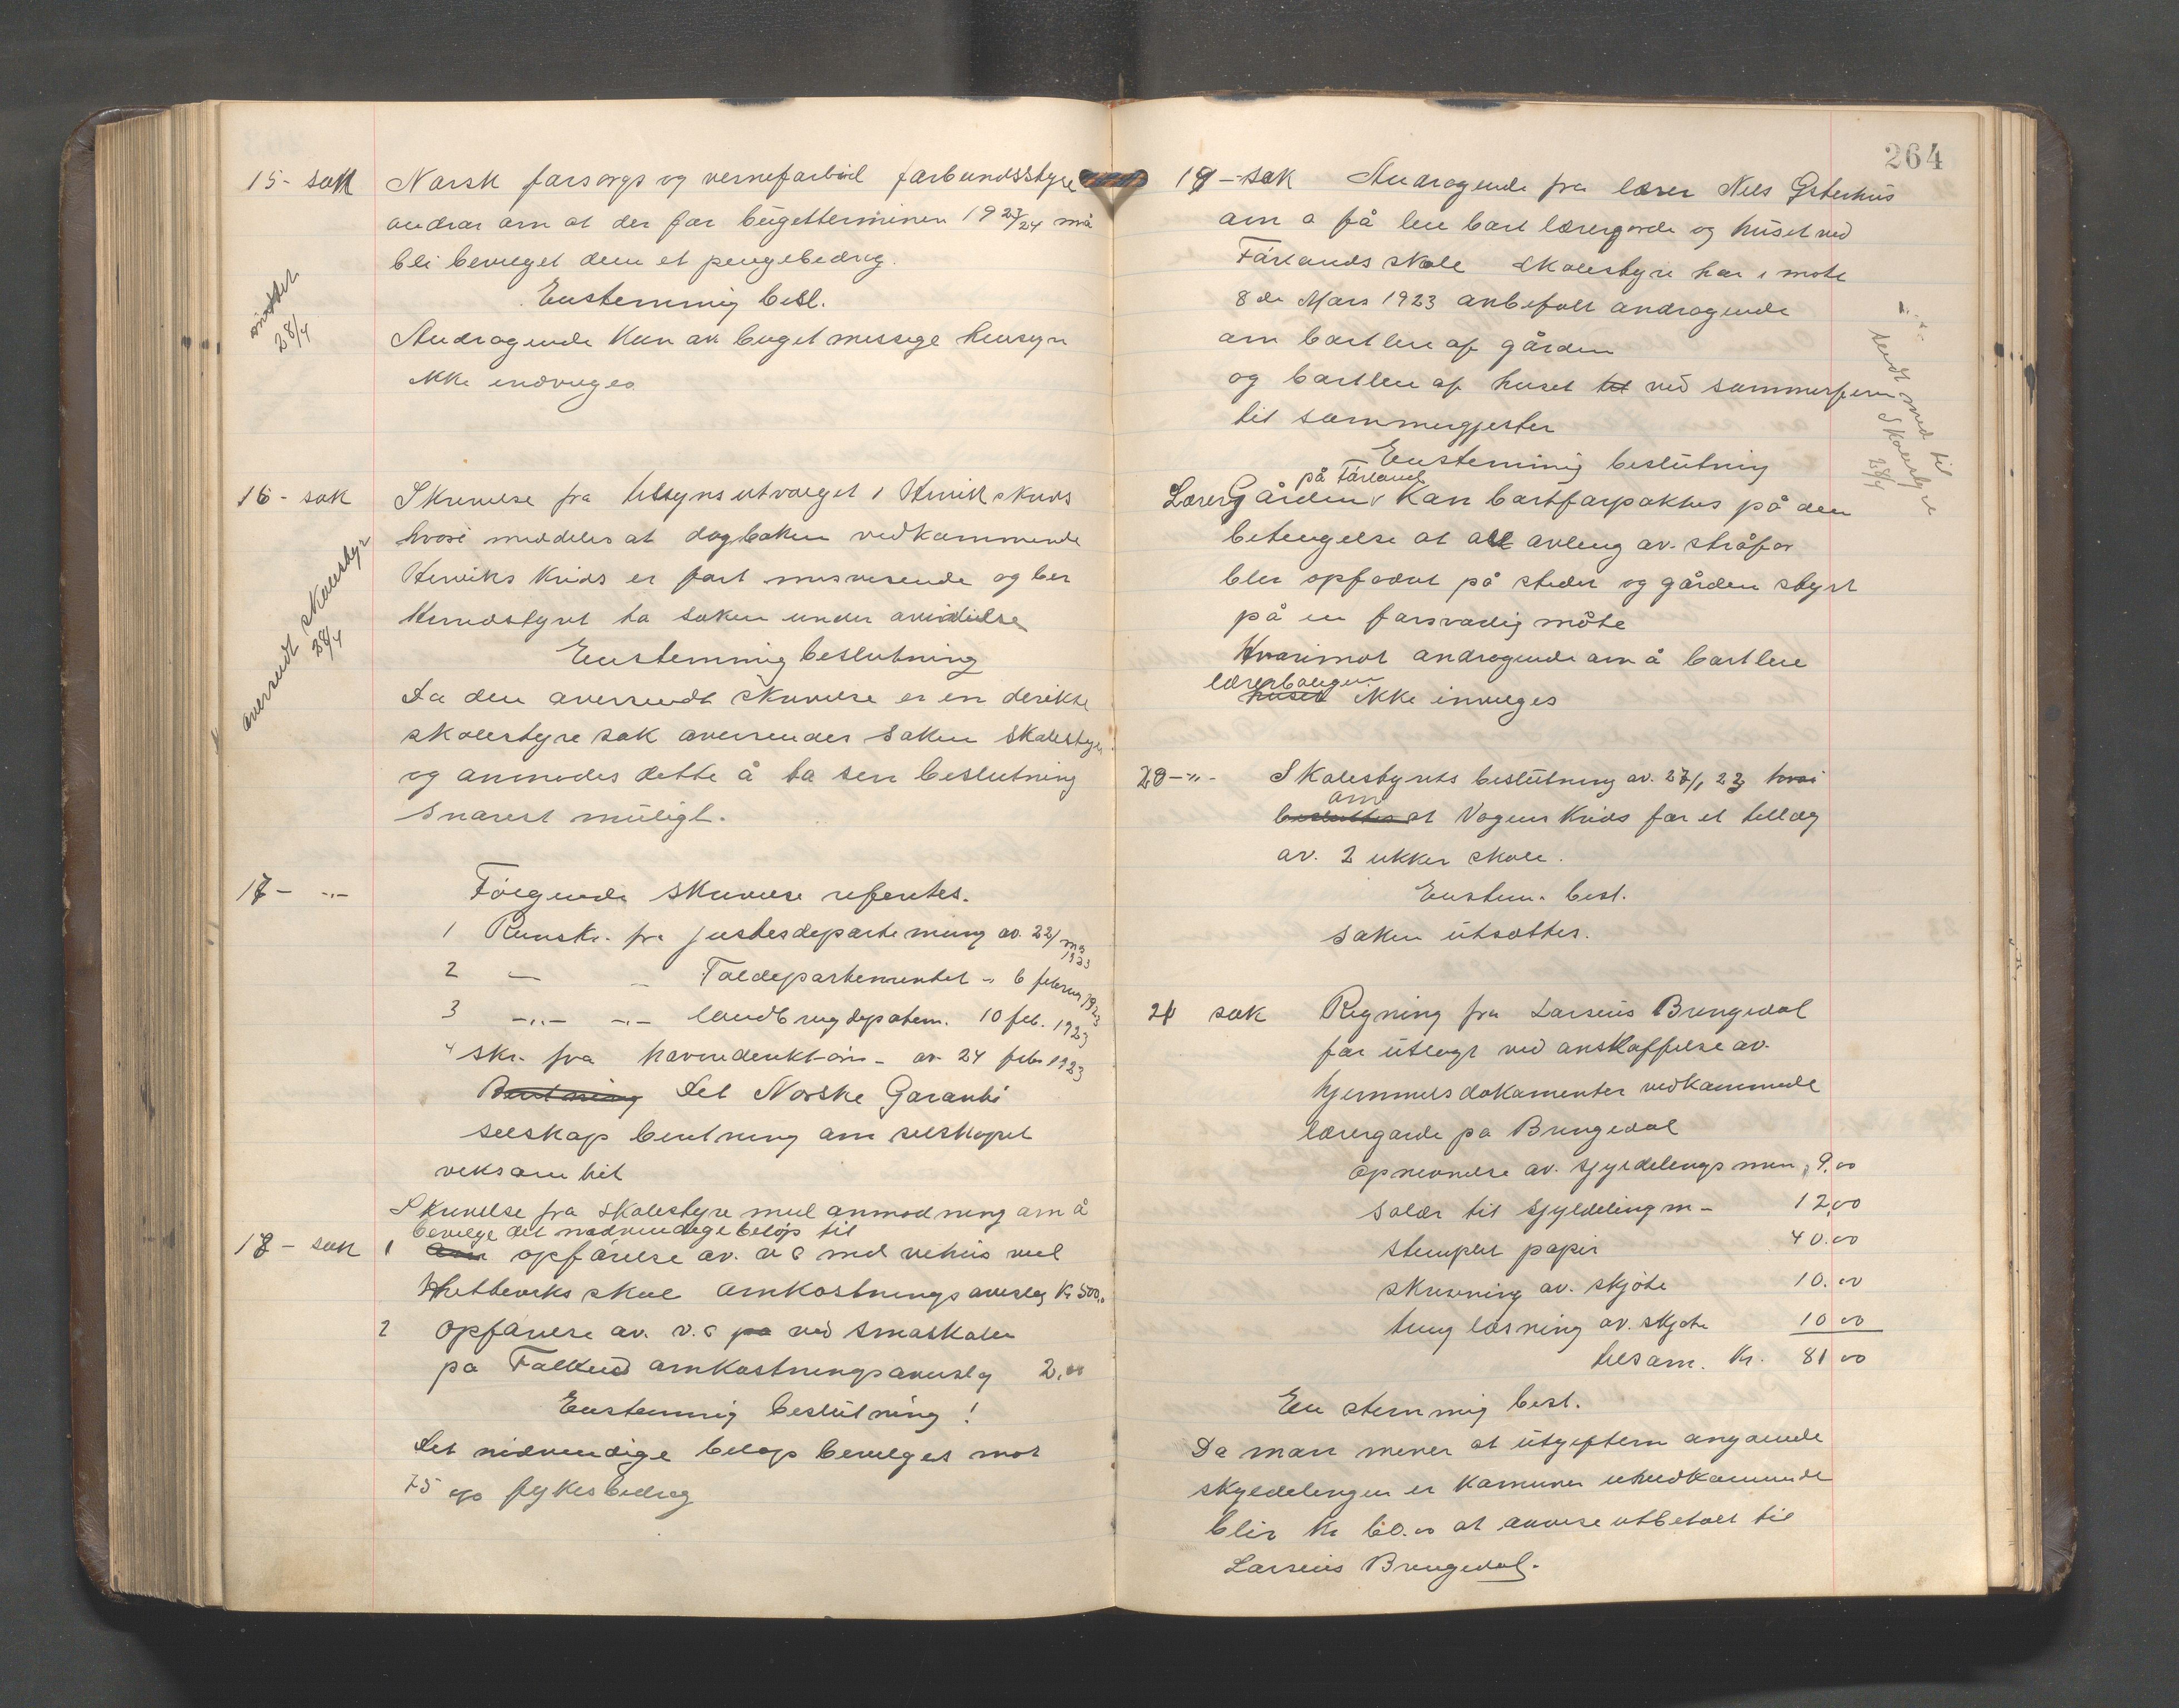 15- sak Norsk forsorgs og vernefarbud farbundsstyre
andrar om at der for bugetterminen 1923/24 må
bli beviuget dem et pengebedrag.
Enstemmig besl.
Andragende kan av buget messege hensyn
ikke indvilges
28/4
16- sak Skrivelse fra tilsyns utvalget i Hervik kreds
hvori meddeles at dagboken vedkommende
Herviks Krids er ført misvisende og ber
Herredstyret ta saken under avhndlelse
Enstemmig beslutning
Da den oversendt skrivelse er en direkte
skolestyre sak oversendes saken skolestyre
og anmodes dette å ta sen beslutning
snarest muligt.
oversendt skolestyr
28/4
17- -"- Følgende skrivelse referertes.
1 Runskr. fra justesdepartemung av. 22/ ma 1923
2 — — Toldepartementet -" 6 februar 1923
3 -"- -"- landbrugdepatem. 10 feb. 1923
4 skr. fra havnedirektør - av 24 febr 1923
Det Norske Garanti
selskap beretning om selskapet
virksomhet
Skrivelse fra skolestyre med anmodning om å
bevilge det nødvendige beløp til
18- sak 1 opførelse av. v c med vehus ved
Hettervik skole omkostnings overslag Kr 500.
2 Opførelse av. v. c på ved småskolen
på Falkeid omkostningsoverslag 2,00
Enstemmig beslutning!
Det nødvendige beløp bevilges mot
75 o/o fylkesbedrag
264
19- sak Andragende fra lærer Nils Østerhus
om a få leie bort lærergorde og huset ved
Førlands skole Skolestyre har i møte
8 de Mars 1923 anbefalt andragende
om bortleie af gården
og bortleie af huset til ved sommerferien
til sommergjester
Enstemmig beslutning
på Førland
LærerGården kan bortforpaktes på den
betengelse at all avleng av. stråfor
bler opfodret på stedet og gården styrt
på en forsvarlig måte
Hvorimot andragende om å bortleie
lærerboligen
huset ikke invilges
sendt med til
Skolestyre
28/4
20 -"- Skolestyrets beslutning av. 27/1 23 hvori
om
besluttes at Vogens Krids får et tillæg
av. 2 ukker skole.
Enstem. besl.
saken utsættes.
21 sak Regning fra Larseius Bringedal
for utlegt ved anskaffelse av.
hjemmels dokumenter vedkommende
lærergarde på Bringedal
opnevnelse av. skyldelengs men, 9.00
salær til skyldeling m- 12,00
stemplet papir 40.00
skrivning av. skjøte 10.00
ting læsning av. skjøte 10 00
tilsam. Kr. 81 00
En stemmig besl.
Da man mener at utgiftern angaende
skyldelingen er komunen uvedkommende
blir kr 60.00 at anvise utbetalt til
Larseius Bringedal.